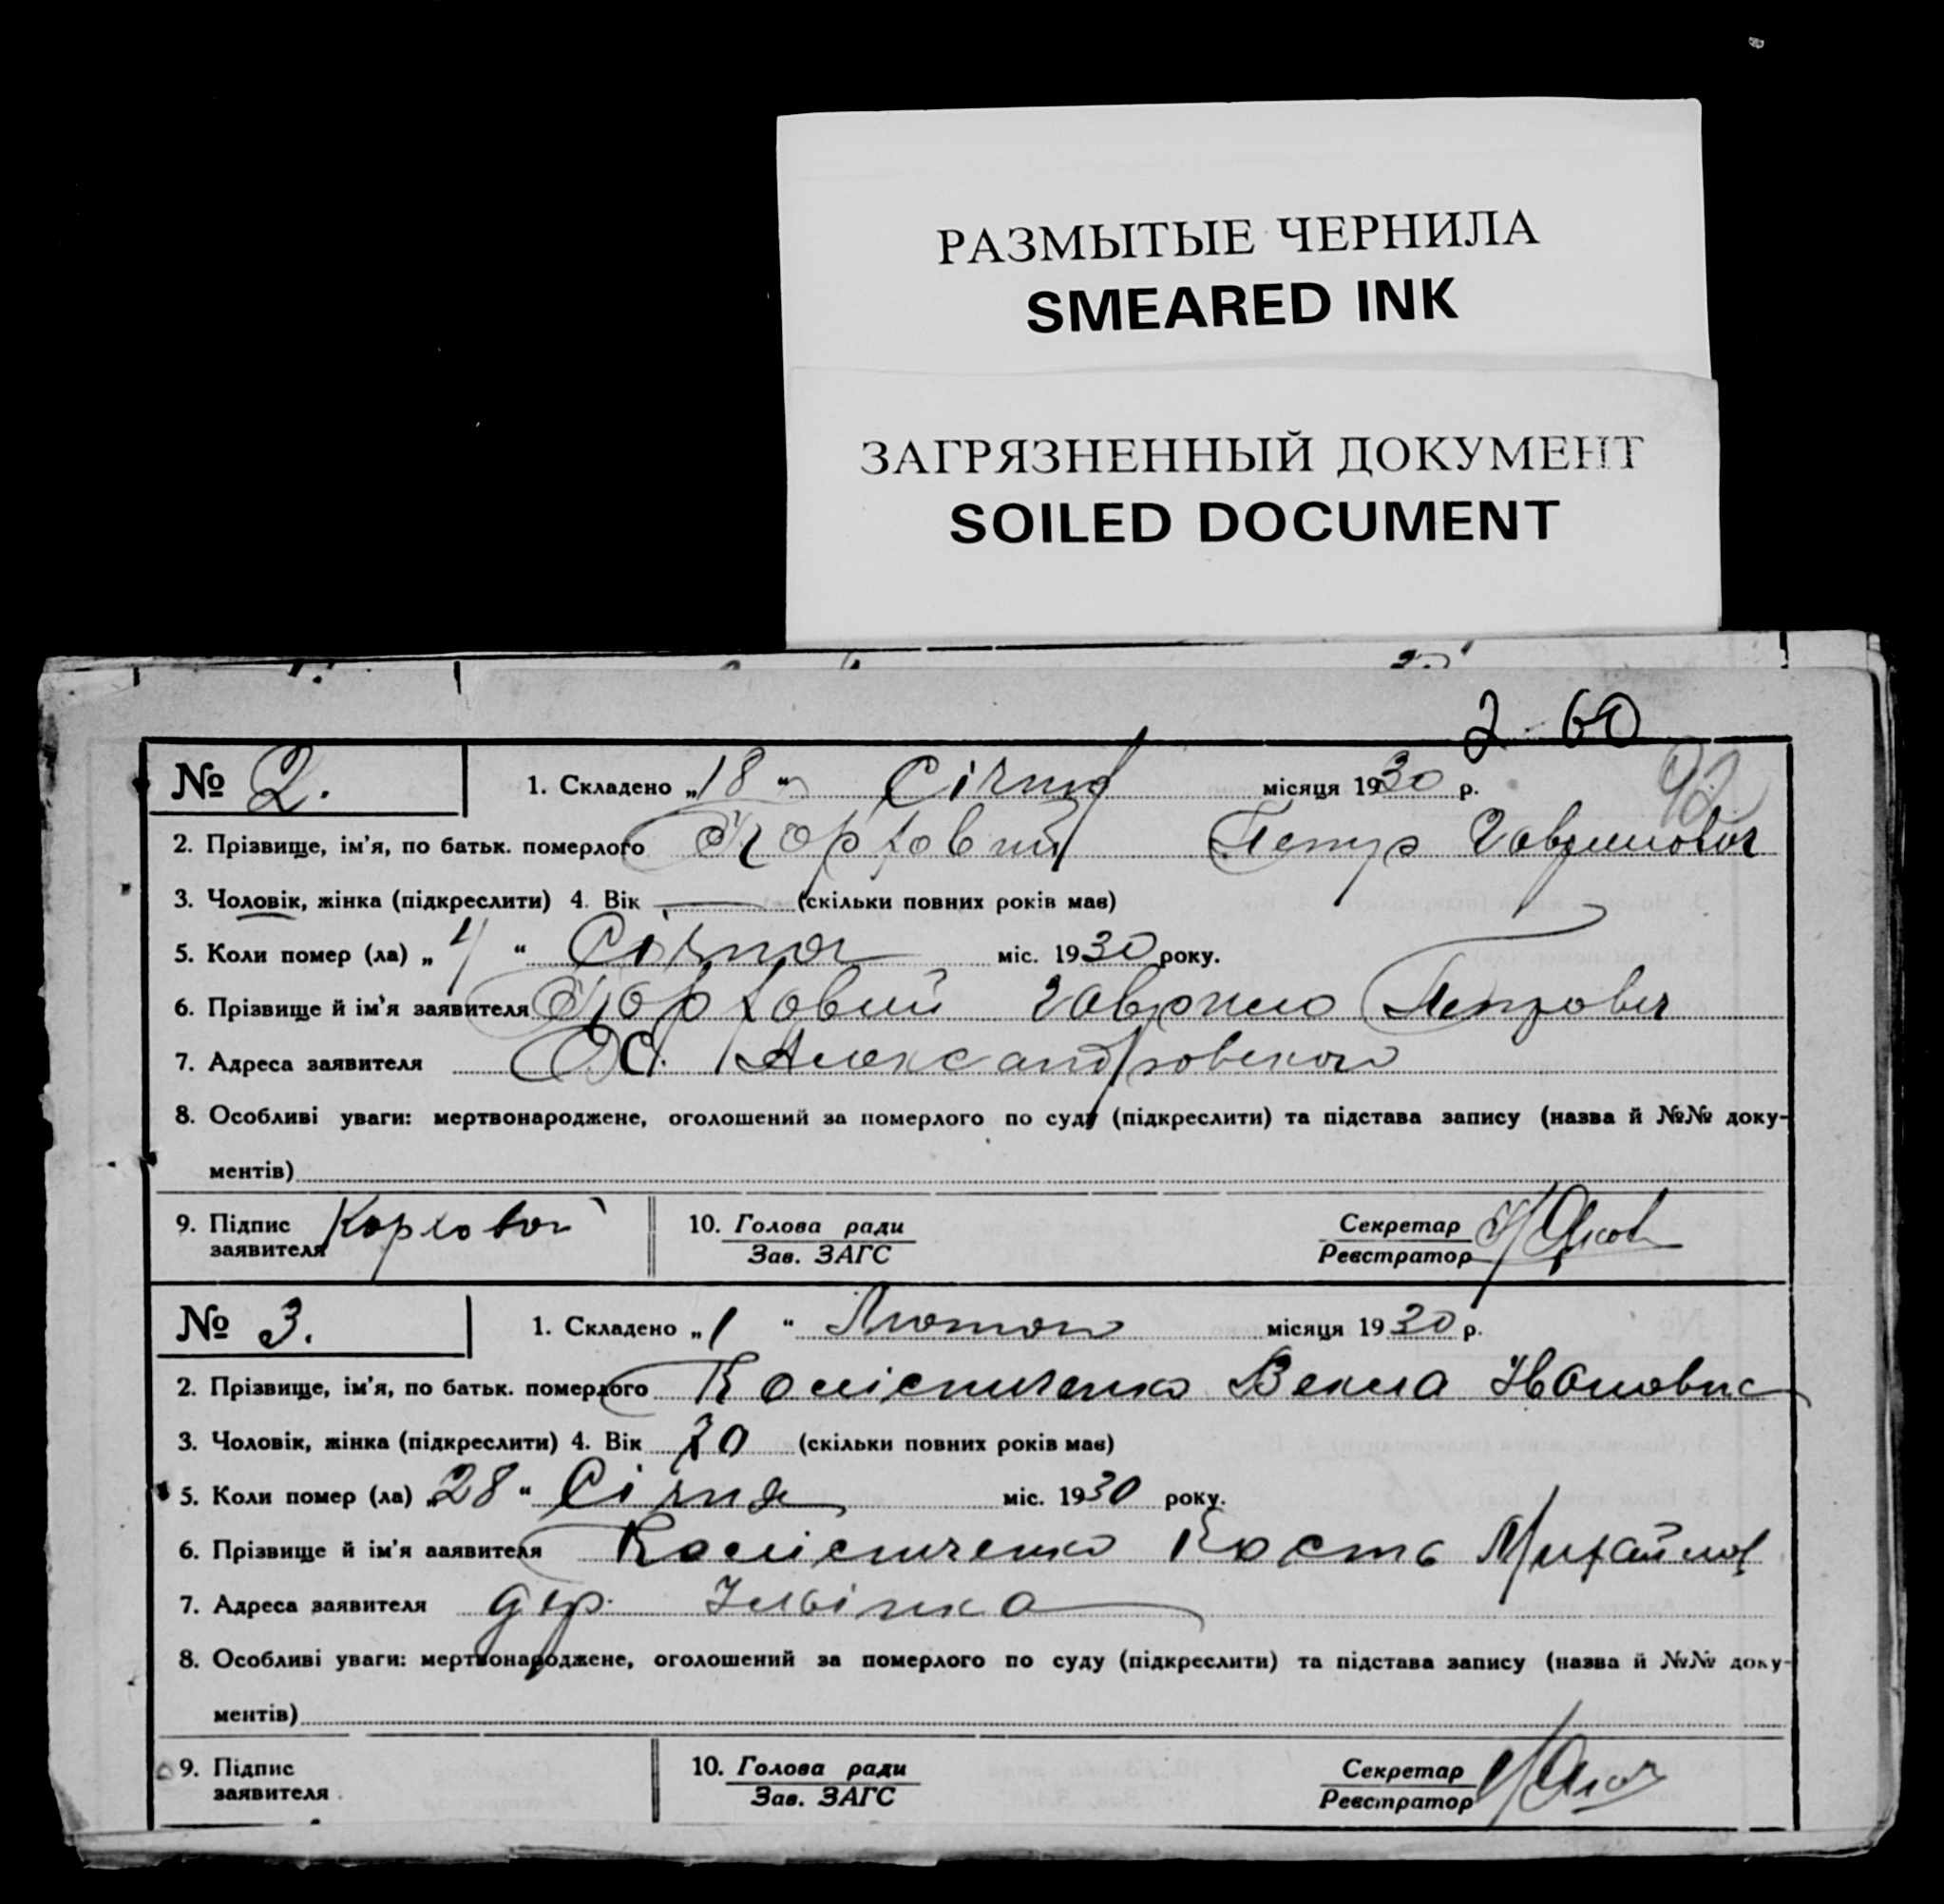 РАЗМЫТЫЕ ЧЕРНИЛА
SMEARED INK
ЗАГРЯЗНЕННЫЙ ДОКУМЕНТ
SOILED DOCUMENT
2 60
92
№ 2. 1. Складено „18" Січня місяця 1930 р.
2. Прізвище, ім'я, по батьк. померлого Петро
3. Чоловік, жінка (підкреслити) 4. Вік — (скільки повних років має)
5. Коли помер (ла) „4" Січня міс. 1930 року.
6. Прізвище й ім'я заявителя Гаврило Петрович
7. Адреса заявителя
8. Особливі уваги: мертвонароджене, оголошений за померлого по суду (підкреслити) та підстава запису (назва й №№ доку-
ментів)
9. Підпис 10. Голова ради Секретар
заявителя Зав. ЗАГС Реєстратор
№ 3. 1. Складено „1" Лютого місяця 1930 р.
2. Прізвище, ім'я, по батьк. померлого Колісниченко Векла
3. Чоловік, жінка (підкреслити) 4. Вік (скільки повних років має)
5. Коли помер (ла) „28" Січня міс. 1930 року.
6. Прізвище й ім'я заявителя Колісниченко Кость Михайлов
7. Адреса заявителя дер. Ільвінка
8. Особливі уваги: мертвонароджене, оголошений за померлого по суду (підкреслити) та підстава запису (назва й №№ доку-
ментів)
9. Підпис 10. Голова ради Секретар
заявителя Зав. ЗАГС Реєстратор